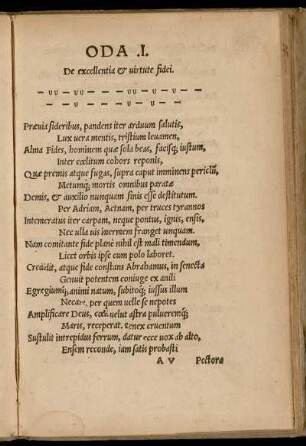 ODA .I.
De excellentia & uirtute fidei.
— ᴗᴗ — ᴗᴗ — — — ᴗᴗ — ᴗᴗ — —
— ᴗᴗ — ᴗᴗ — ᴗ — —
Præuia sideribus, pandens iter arduum salutis,
Lux uera mentis, tristium leuamen,
Alma Fides, hominem quæ sola beas, facisq; iustum,
Inter cœlitum cohors reponis,
Quæ premis atque fugas, supra caput imminens periclũ,
Metumq; mortis omnibus paratæ
Demis, & auxilio nunquam sinis esse destitutum.
Per Adriam, Aetnam, per truces tyrannos
Intemeratus iter carpam, neque pontus, ignis, ensis,
Nec ulla uis inermem franget unquam.
Nam comitante fide planè nihil est mali timendum,
Licet orbis ipse cum polo laboret.
Credidit, atque fide constans Abrahamus, in senecta
Genuit potentem coniuge ex anili
Egregiumq; animi natum, subitoq; iussus illum
Necare, per quem uelle se nepotes
Amplificare Deus, cœli uelut astra pulueremq;
Maris, receperat. Senex cruentum
Sustulit intrepidus ferrum, datur ecce uox ab alto,
Ensem reconde, iam satis probasti
A V Pectora